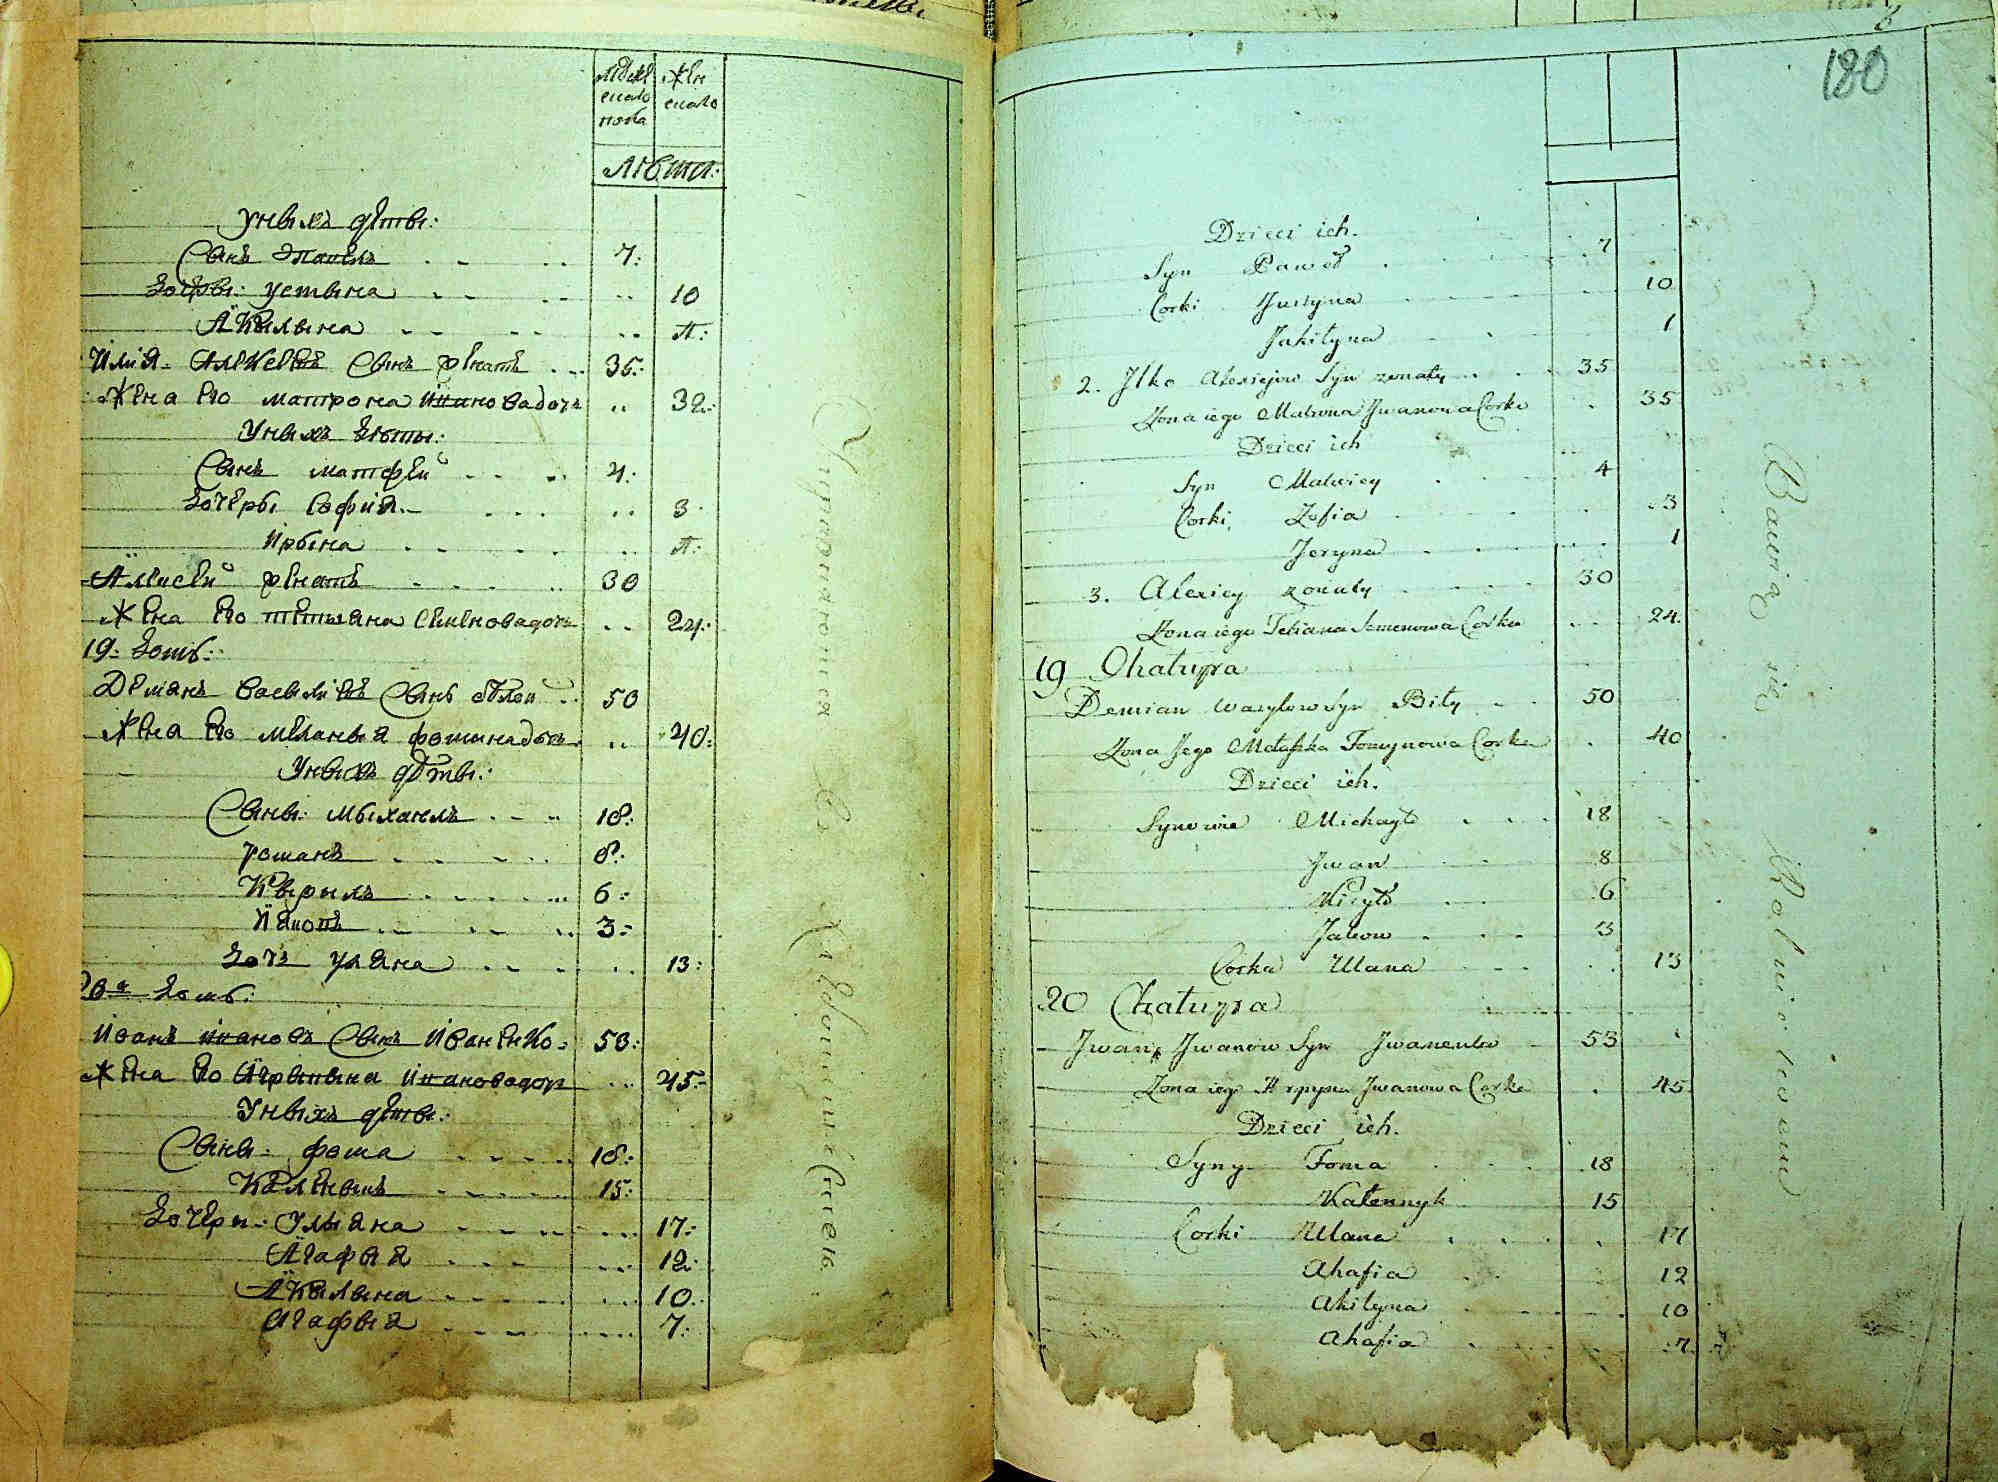 мужескаго пола
женскаго
Лѣта:
У нихъ дѣти:
Сынъ Павелъ 7:
Дочери: Устина 10
Акилина
Илия Алексѣевъ Сынъ женатъ 35:
Жена Его матрона Иванова дочь 32:
У нихъ дѣти:
Сынъ матфей 4:
Дочери София 3
Ирина
Алексей женатъ 30
Жена Его тетияна Семенова дочь 24:
19: Домъ:
Демянъ Василиевъ Сынъ бѣлой 50
Жена Его мелания фомина дочь 40:
У нихъ дѣти:
Сыны: михаилъ 18:
8:
Кирылъ 6:
Яковъ 3:
Дочь уляна 13:
20й Домъ:
Иванъ Ивановъ Сынъ Иваненко 53:
Жена Его Агрипина Иванова дочь 45:
У нихъ дѣти:
Сыны: фома 18:
Каленикъ 15:
Дочери: Улияна 17:
Агафия 12:
Акилина 10:
Агафия 7:
180
Dzieci ich.
Syn Paweł 7
Corki Justyna 10
Jakilyna 1
2. Jlko Alexiejow Syn zonaty 35
Zona iego Matrona Jwanowa Corka 35
Dzieci ich
Syn Matwiey 4
Corki Zofia 3
Jeryna 1
3. Alexiey zonaty 30
Zona iego Tetiana Semenowa Corka 24.
19 Chałupa
Demian Wasylow Syn Biły 50
Zona Jego Małaszka Fomynowa Corka 40
Dzieci ich.
Synowie Michayło 18
Jwan 8
Kiryło 6
Jakow 3
Corka Ulana 13
20 Chałupa
Jwan Jwanow Syn Jwanenko 53
Zona iego Jwanowa Corka 45
Dzieci ich.
Syny Foma 18
Kałennyk 15
Corki Ulana 17
Ahafia 12
Akilyna 10
Ahafia 7.
Bawią się Rolnictwem